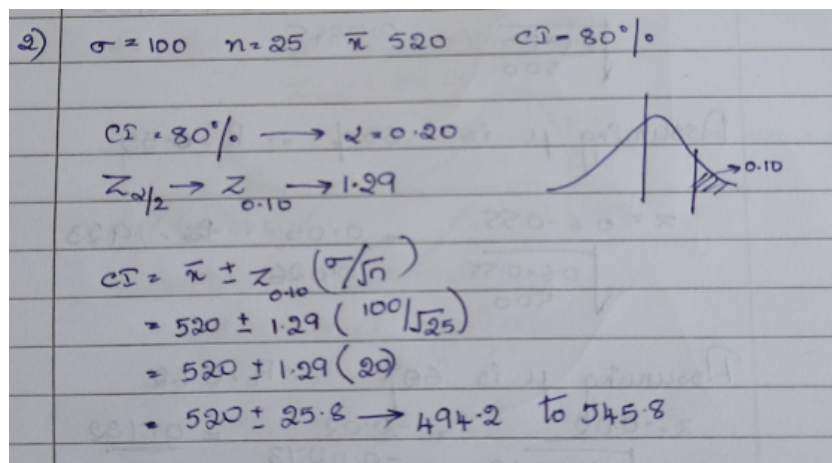 2) σ = 100 n = 25 x̄ 520 CI - 80%
CI = 80% → α = 0.20
Z α/2 → Z 0.10 → 1.29
→ 0.10
CI = x̄ ± Z 0.10 (σ/√n)
= 520 ± 1.29 (100/√25)
= 520 ± 1.29 (20)
= 520 ± 25.8 → 494.2 to 545.8